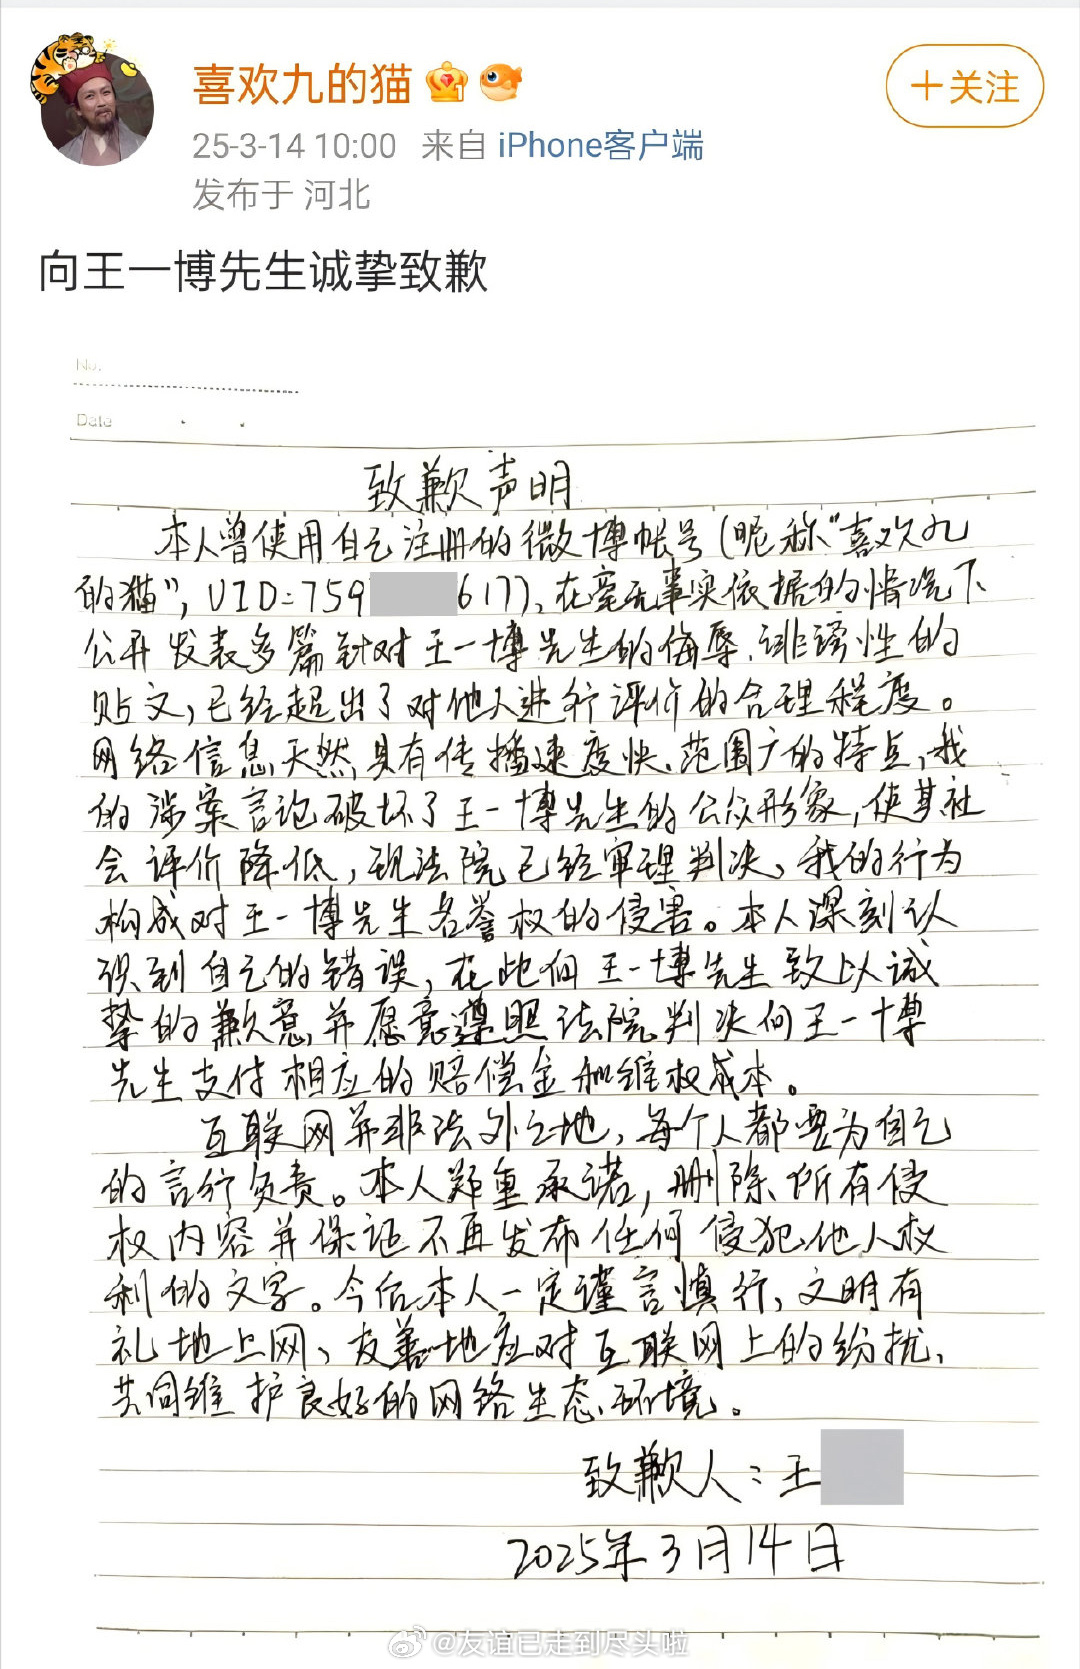 喜欢九的猫
+关注
25-3-14 10:00 来自 iPhone客户端
发布于 河北
向王一博先生诚挚致歉
No.
Date
致歉声明
本人曾使用自己注册的微博帐号(昵称“喜欢九
的猫”,UID:759 617)、在毫无事实依据的情况下
公开发表多篇针对王一博先生的侮辱、诽谤性的
贴文,已经超出了对他人进行评价的合理程度。
网络信息天然具有传播速度快、范围广的特点,我
的涉案言论破坏了王一博先生的公众形象,使其社
会评价降低,现法院已经审理判决、我的行为
构成对王一博先生名誉权的侵害。本人深刻认
识到自己的错误,在此向王一博先生致以诚
挚的歉意,并愿意遵照法院判决向王一博
先生支付相应的赔偿金和维权成本。
互联网并非法外之地,每个人都要为自己
的言行负责。本人郑重承诺,删除所有侵
权内容并保证不再发布任何侵犯他人权
利的文字。今后本人一定谨言慎行,文明有
礼地上网、友善地应对互联网上的纷扰、
共同维护良好的网络生态环境。
致歉人:王
2025年3月14日
@友谊已走到尽头啦